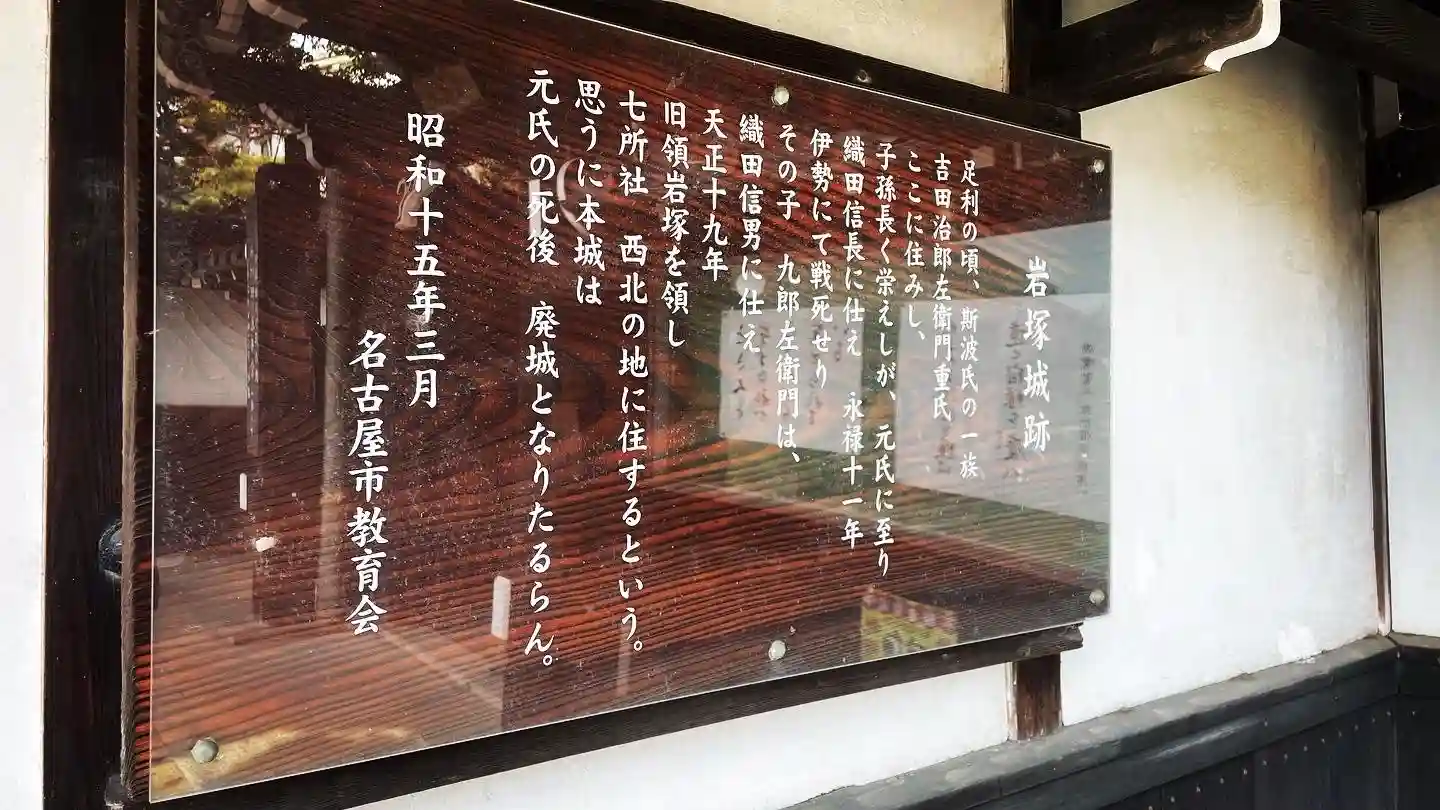 岩塚城跡
足利の頃、斯波氏の一族
吉田治郎左衛門重氏
ここに住みし、
子孫長く栄えしが、元氏に至り
織田信長に仕え 永禄十一年
伊勢にて戦死せり
その子 九郎左衛門は、
織田信男に仕え
天正十九年
旧領岩塚を領し
七所社 西北の地に住するという。
思うに本城は
元氏の死後 廃城となりたるらん。
昭和十五年三月
名古屋市教育会